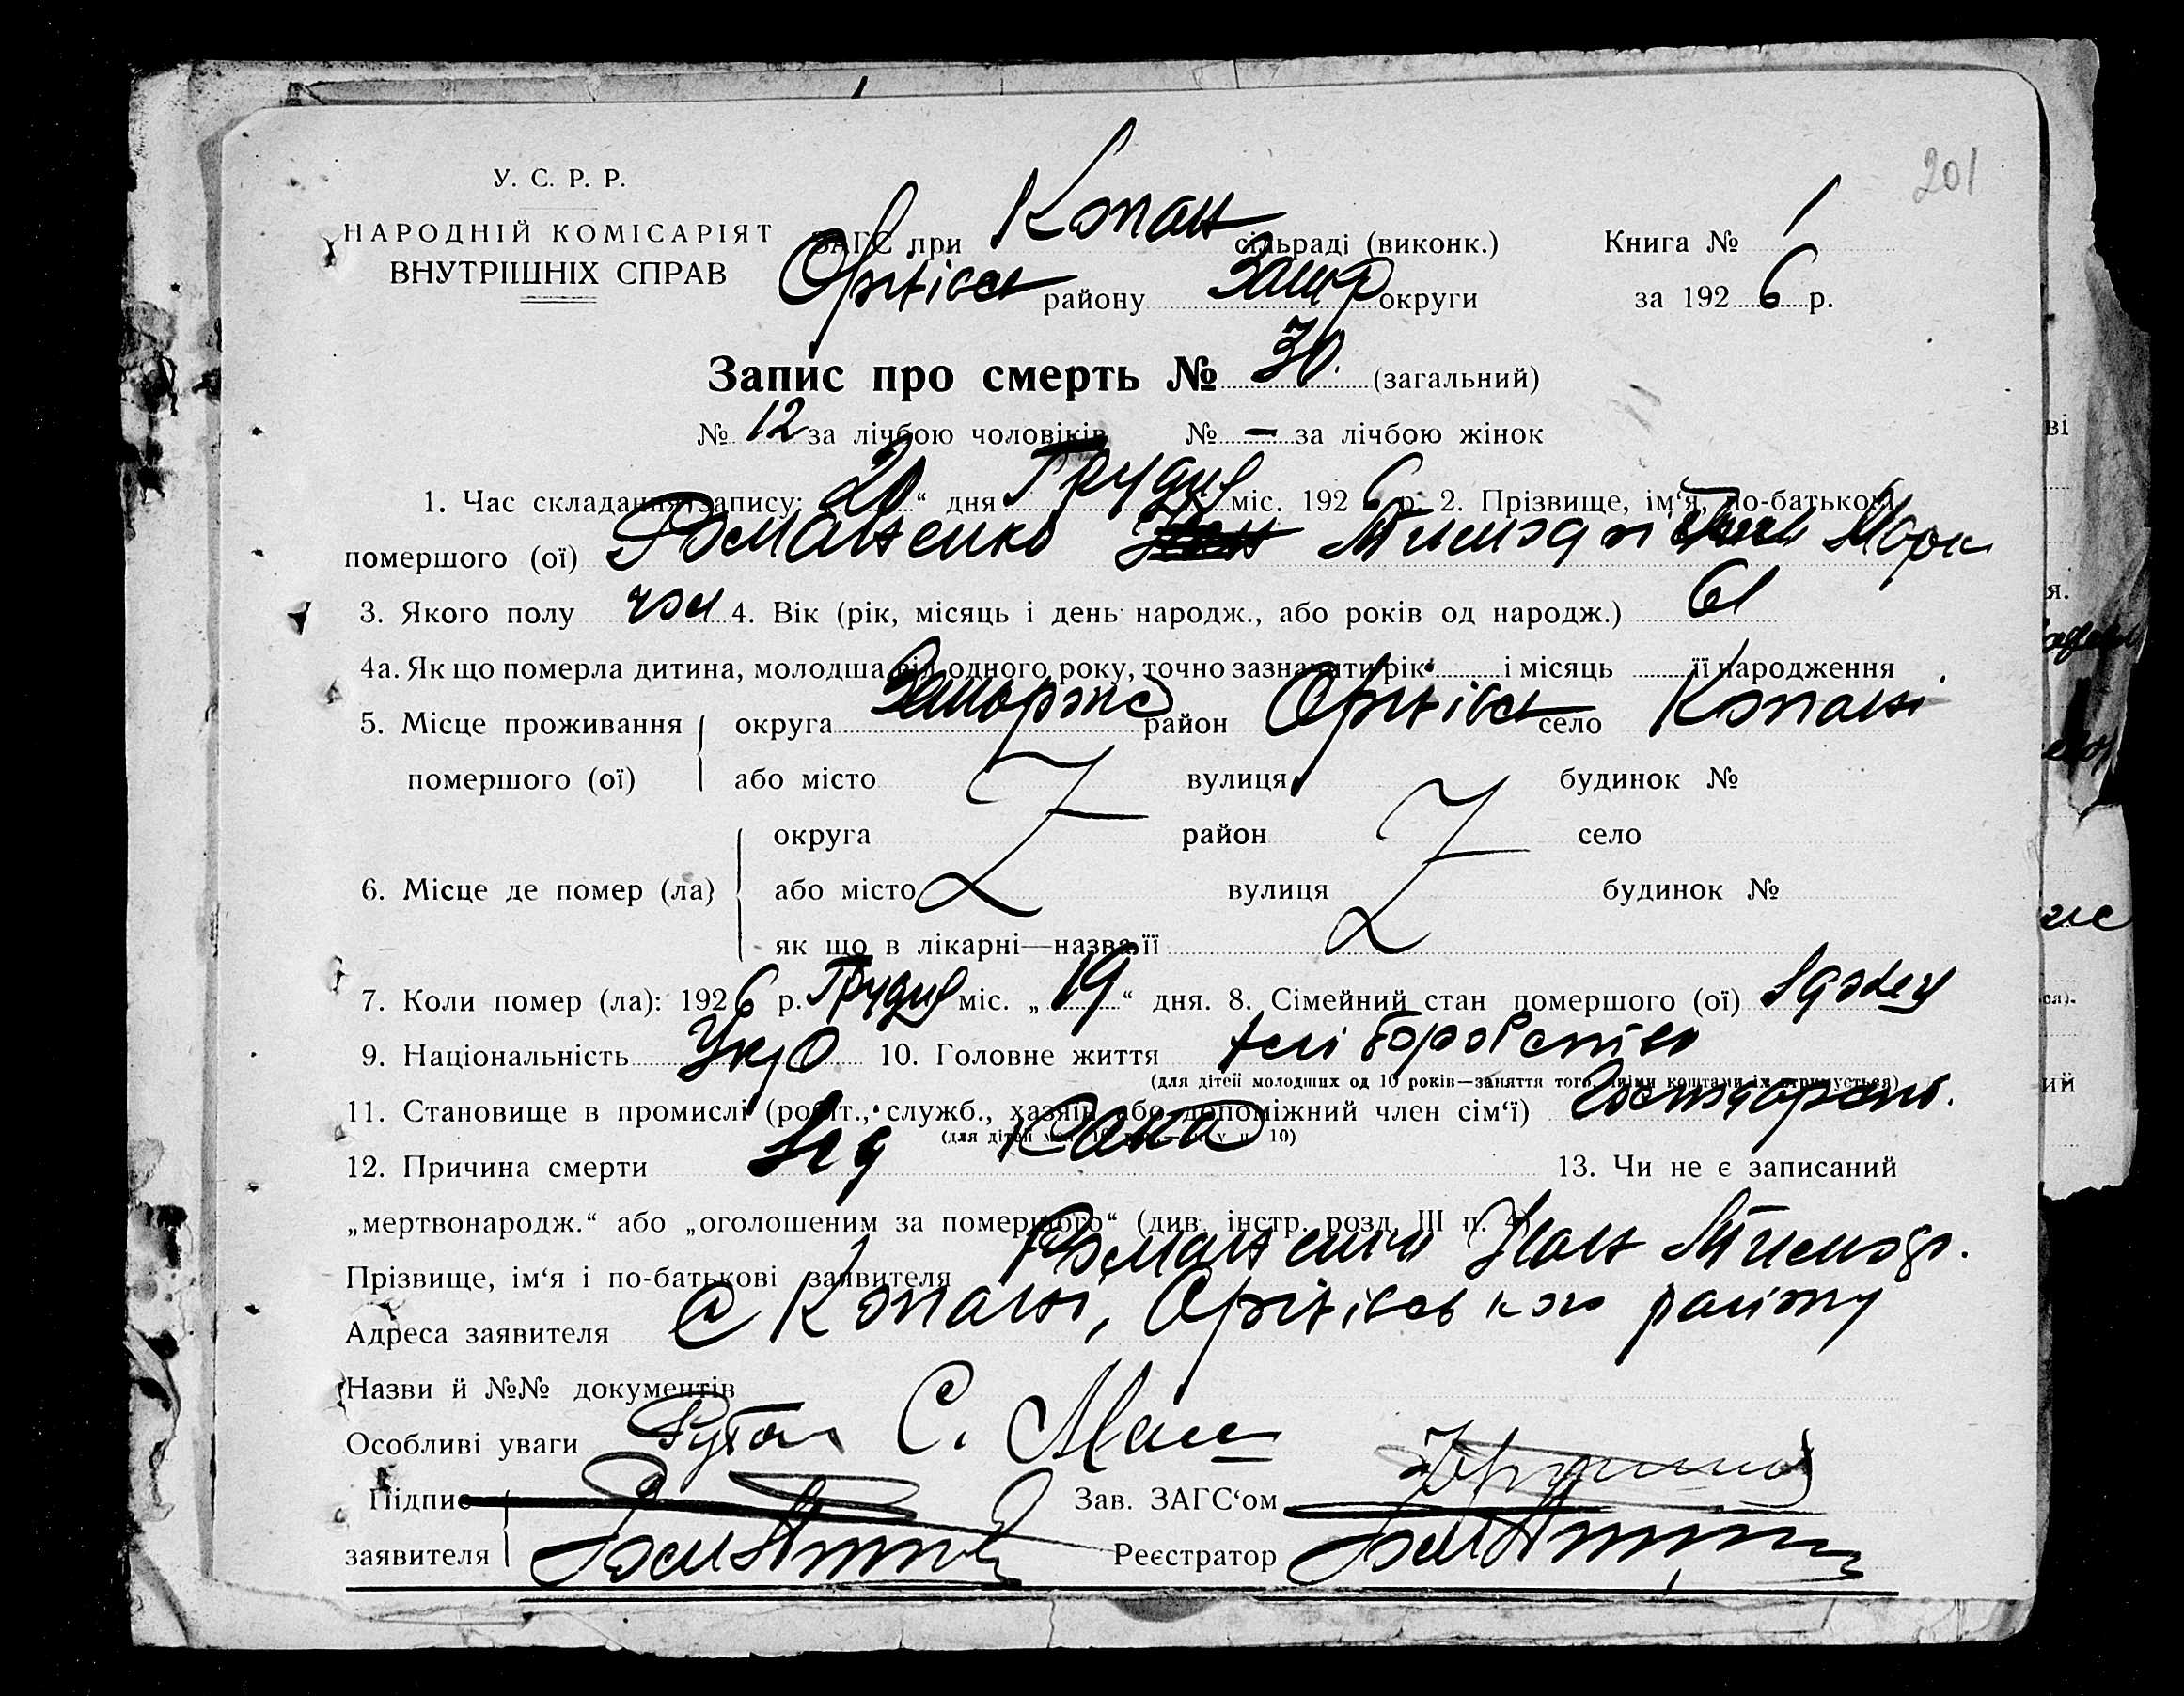 201
У. С. Р. Р.
НАРОДНІЙ КОМІСАРІЯТ
ВНУТРІШНІХ СПРАВ
ЗАГС при Копан сільраді (виконк.)
Оріхівськ району Запор округи
Книга № 1
за 1926 р.
Запис про смерть № 30. (загальний)
№ 12 за лічбою чоловіків № — за лічбою жінок
1. Час складання запису: „20“ дня Грудня міс. 1926 р. 2. Прізвище, ім‘я, по-батькові
помершого (ої) Романенко
3. Якого полу чол 4. Вік (рік, місяць і день народж., або років од народж.) 61
4а. Як що померла дитина, молодша від одного року, точно зазначити рік і місяць її народження
5. Місце проживання помершого (ої) округа Запоріж район Оріхівськ село Копані
або місто вулиця будинок №
6. Місце де помер (ла) округа район село
або місто вулиця будинок №
як що в лікарні—назва її
7. Коли помер (ла): 1926 р. Грудня міс. „19“ дня. 8. Сімейний стан помершого (ої) вдовец
9. Національність Укр 10. Головне життя хліборобство
(для дітей молодших од 10 років—заняття того, чиїми коштами їх отримується)
11. Становище в промислі (робіт., служб., хазяїн або допоміжний член сім‘ї)
12. Причина смерти Від рака 13. Чи не є записаний
„мертвонародж.“ або „оголошеним за помершого“ (див. інстр. розд. III п. 4)
Прізвище, ім‘я і по-батькові заявителя Романенко Іван Тимоф.
Адреса заявителя с Копані, Оріхівського району
Назви й №№ документів
Особливі уваги
Підпис заявителя
Зав. ЗАГС‘ом
Реєстратор